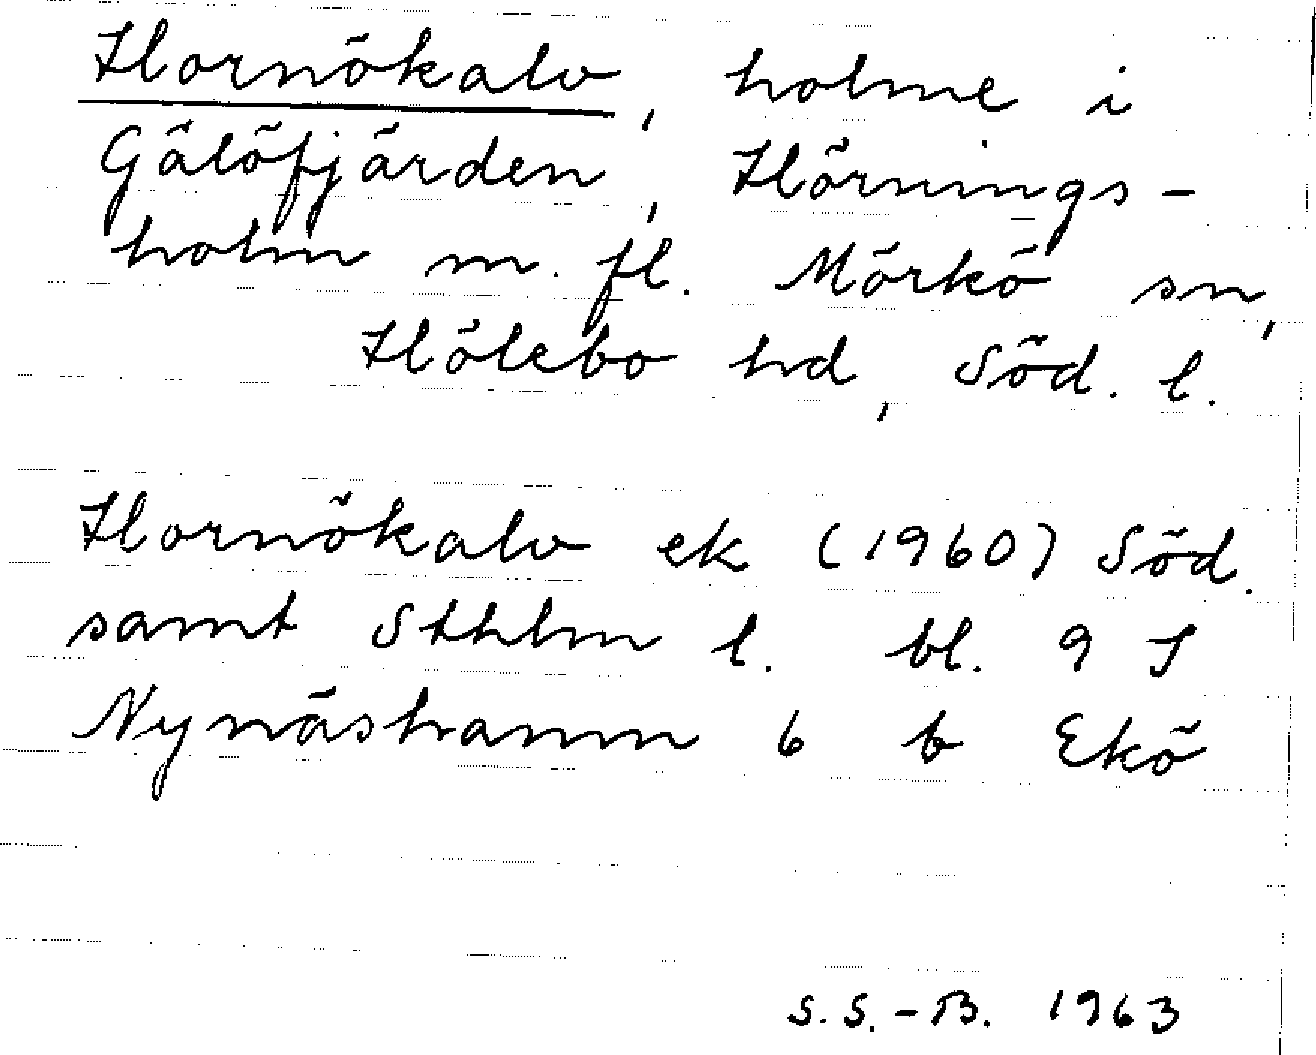 Hornökalv, holme i
Gälöfjärden, Hörnings-
holm m. fl. Mörkö sn,
Hölebo hd, Söd. l.
Hornökalv ek (1960) Söd.
samt Sthlm l. bl. 9 I
Nynäshamn 6 b Ekö
S. S.-B. 1963